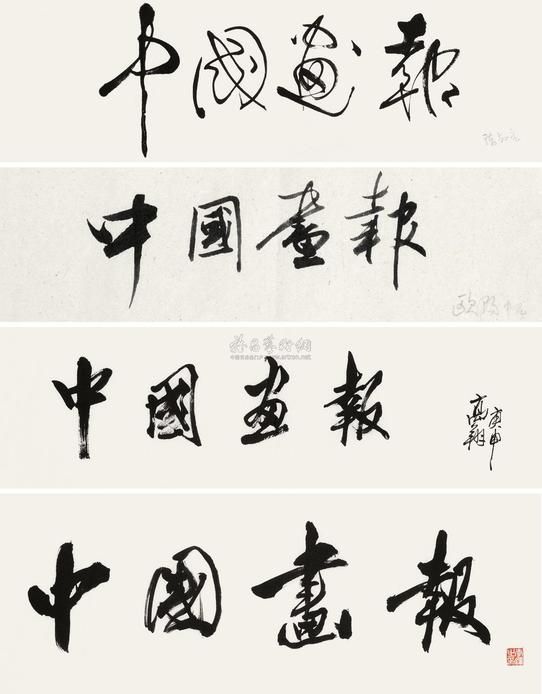 中國畫報
中國畫報
歐陽中石
雅昌藝術網
www.artron.net
中國畫報
庚申
高翔
中國畫報